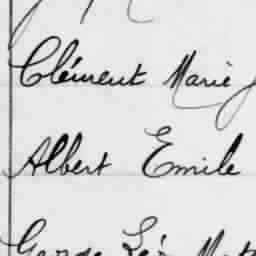 Clément Marie
Albert Emile
George Léo